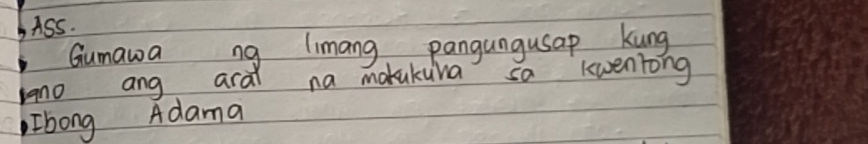 Ass.
Gumawa ng limang pangungusap kung
ano ang aral na makukuha sa kwentong
Ibong Adama